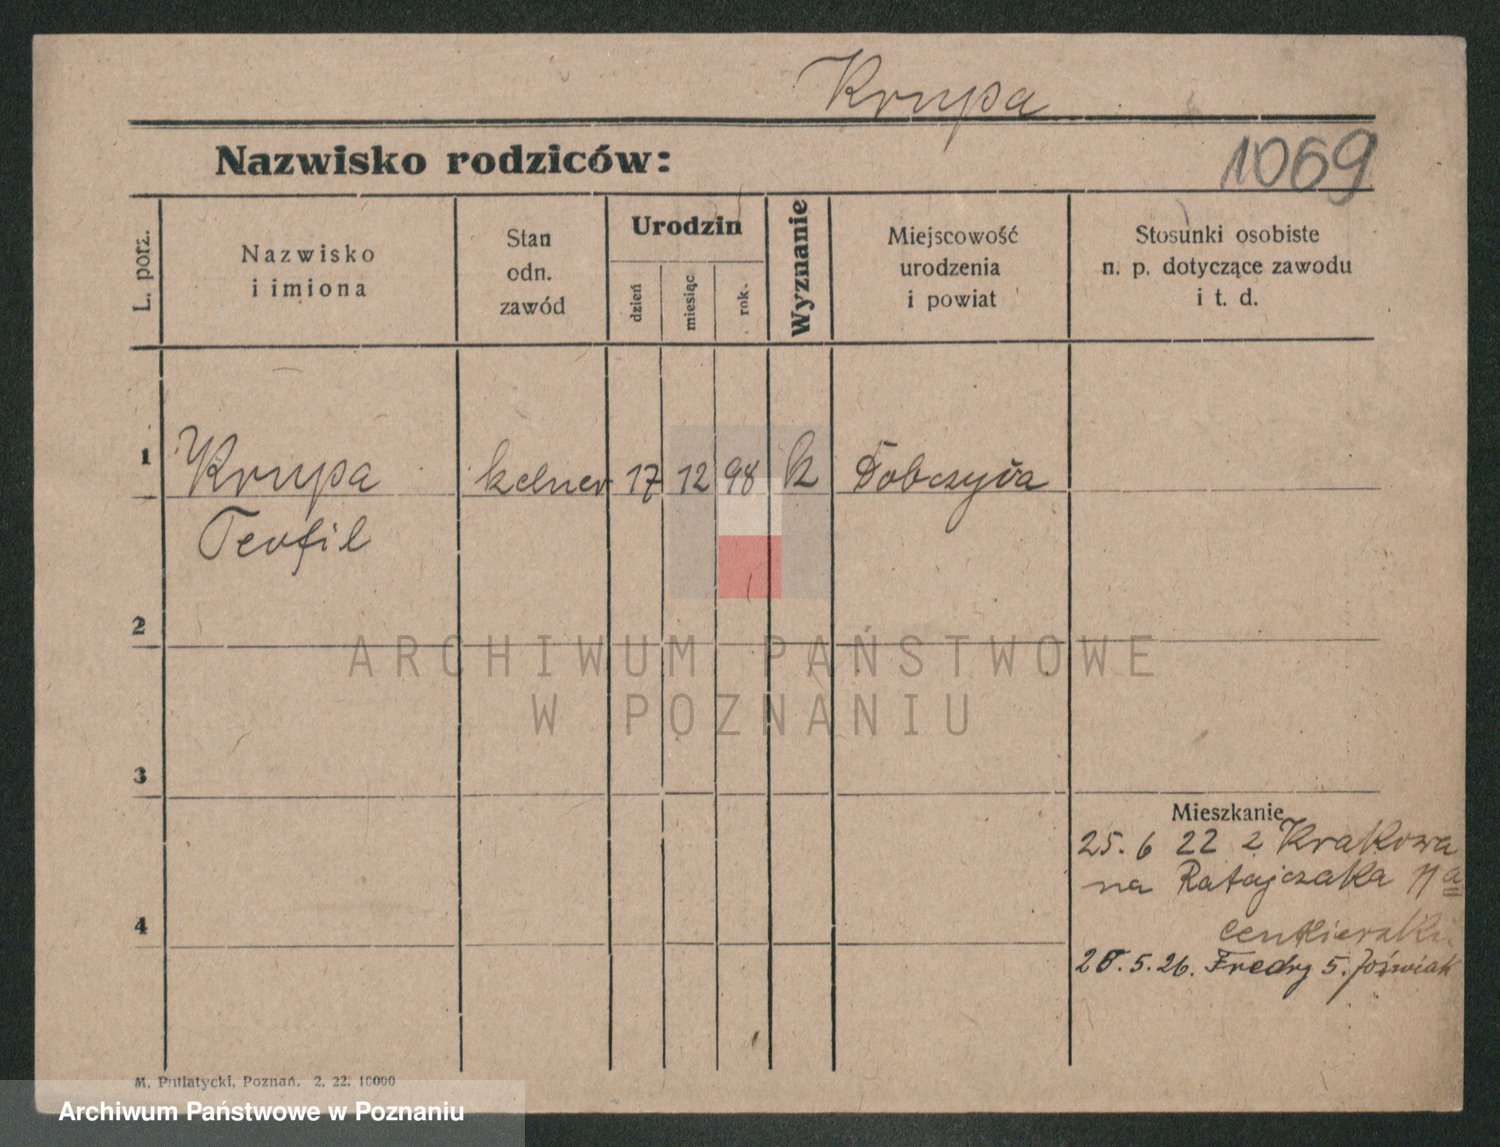 Krupa
Nazwisko rodziców:
1069
L. porz.
Nazwisko
i imiona
Stan
odn.
zawód
Urodzin
dzień
miesiąc
rok.
Wyznanie
Miejscowość
urodzenia
i powiat
Stosunki osobiste
n. p. dotyczące zawodu
i t. d.
1 Krupa kelner 17 12 98 k
Teofil
2
ARCHIWUM PAŃSTWOWE
W POZNANIU
3
Mieszkanie
25. 6 22 z Krakowa
na Ratajczaka
4
28. 5. 26. Fredry 5. Jóświak
M. Putiatycki, Poznań. 2. 22. 10000
Archiwum Państwowe w Poznaniu